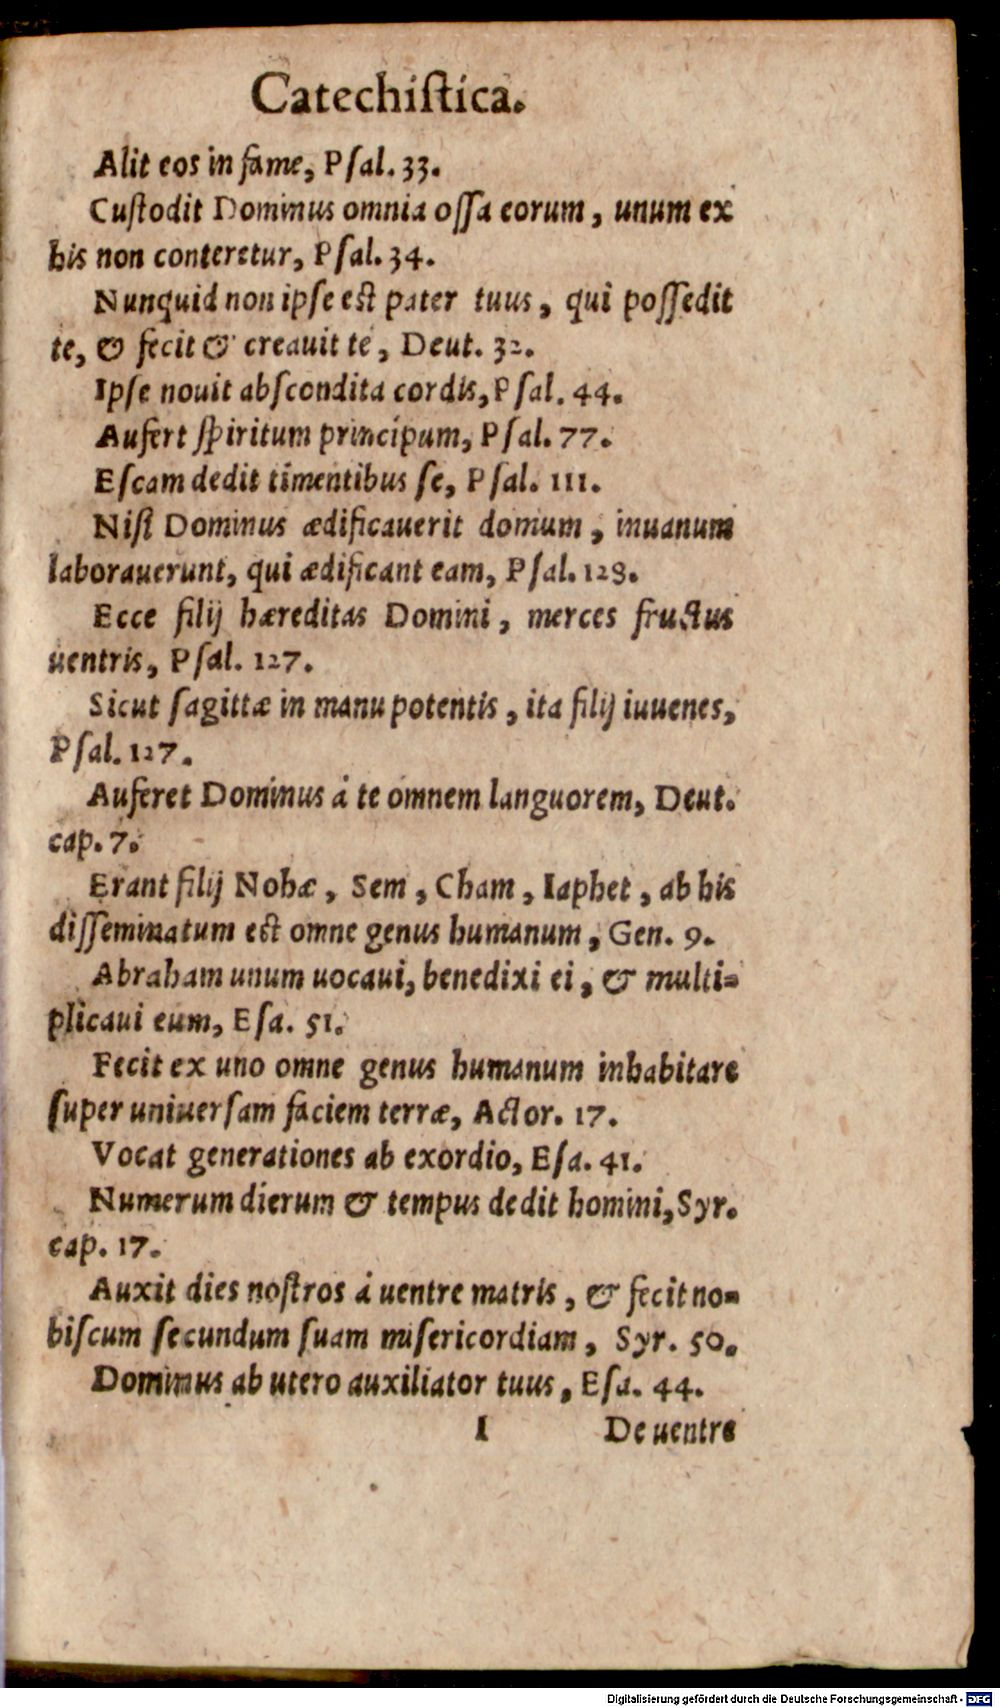 Catechiſtica.
Alit eos in fame, Pſal. 33.
Cuſtodit Dominus omnia oſſa eorum, unum ex
his non conteretur, Pſal. 34.
Nunquid non ipſe eſt pater tuus, qui poſſedit
te, & fecit & creauit te, Deut. 32.
Ipſe nouit abſcondita cordis, Pſal. 44.
Aufert ſpiritum principum, Pſal. 77.
Eſcam dedit timentibus ſe, Pſal. 111.
Niſi Dominus ædificauerit domum, inuanum
laborauerunt, qui ædificant eam, Pſal. 128.
Ecce filij hæreditas Domini, merces fructus
uentris, Pſal. 127.
Sicut ſagittæ in manu potentis, ita filij iuuenes,
Pſal. 127.
Auferet Dominus à te omnem languorem, Deut.
cap. 7.
Erant filij Nohæ, Sem, Cham, Iaphet, ab his
diſſeminatum eſt omne genus humanum, Gen. 9.
Abraham unum uocaui, benedixi ei, & multi-
plicaui eum, Eſa. 51.
Fecit ex uno omne genus humanum inhabitare
ſuper uniuerſam faciem terræ, Actor. 17.
Vocat generationes ab exordio, Eſa. 41.
Numerum dierum & tempus dedit homini, Syr.
cap. 17.
Auxit dies noſtros à uentre matris, & fecit no-
biſcum ſecundum ſuam miſericordiam, Syr. 50.
Dominus ab utero auxiliator tuus, Eſa. 44.
I De uentre
Digitalisierung gefördert durch die Deutsche Forschungsgemeinschaft - DFG